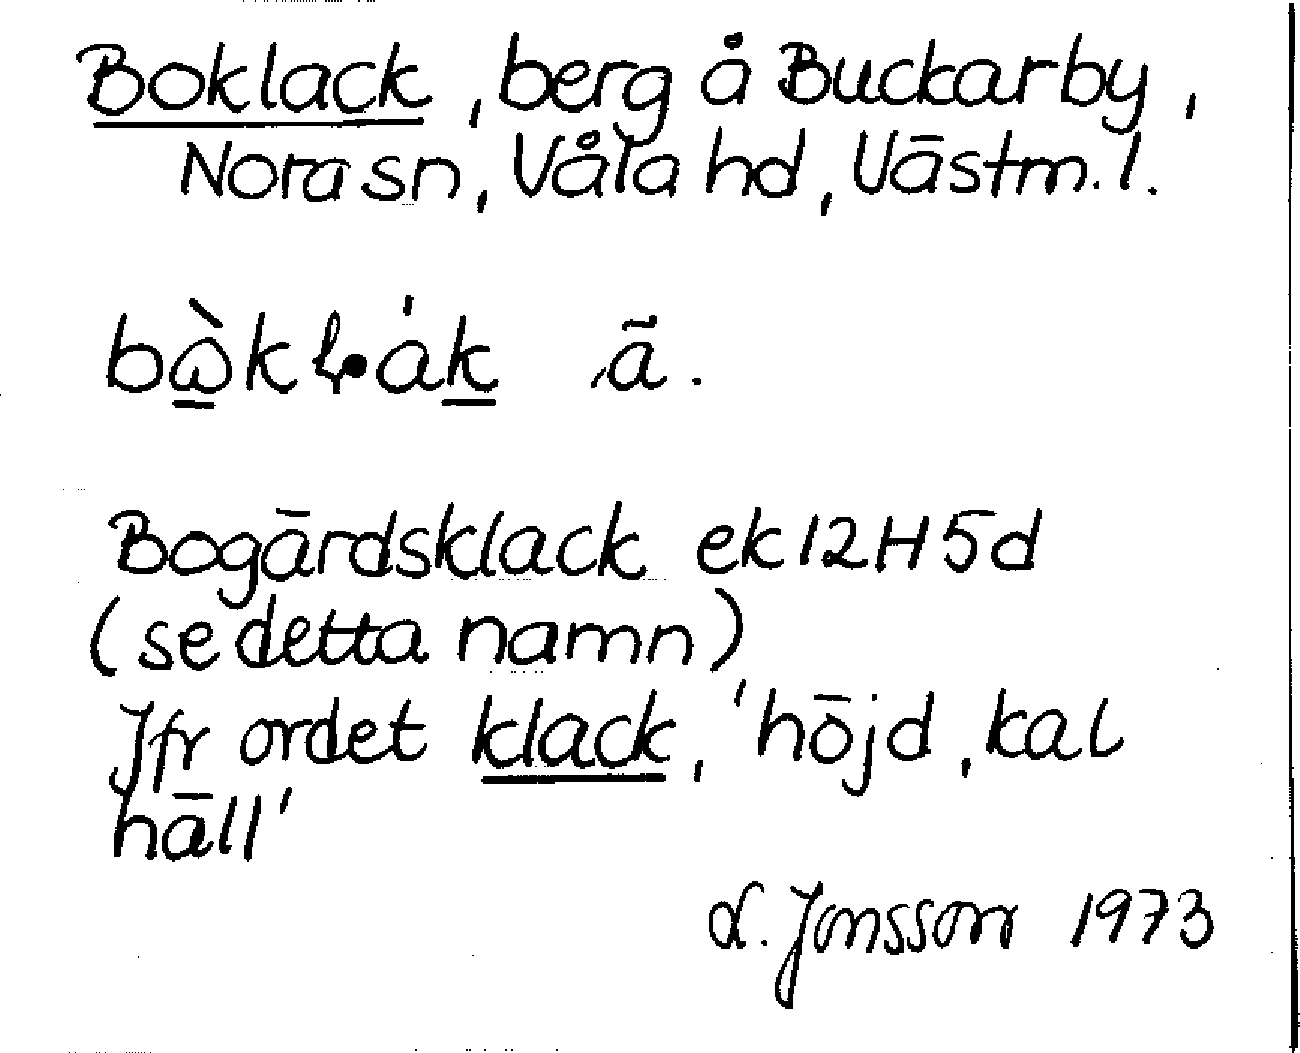 Boklack, berg å Buckarby,
Nora sn, Våla hd, Västm. l.
ä.
Bogärdsklack ek 12H 5d
(se detta namn)
Jfr ordet klack, 'höjd, kal
häll'
L. Jonsson 1973